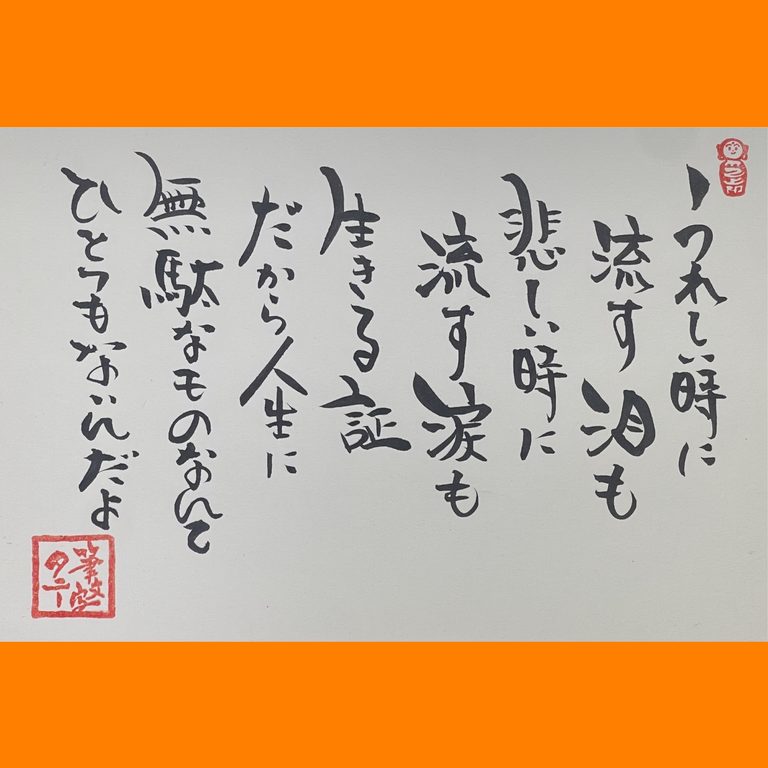 うれしい時に
流す泪も
悲しい時に
流す涙も
生きる証
だから人生に
無駄なものなんて
ひとつもないんだよ